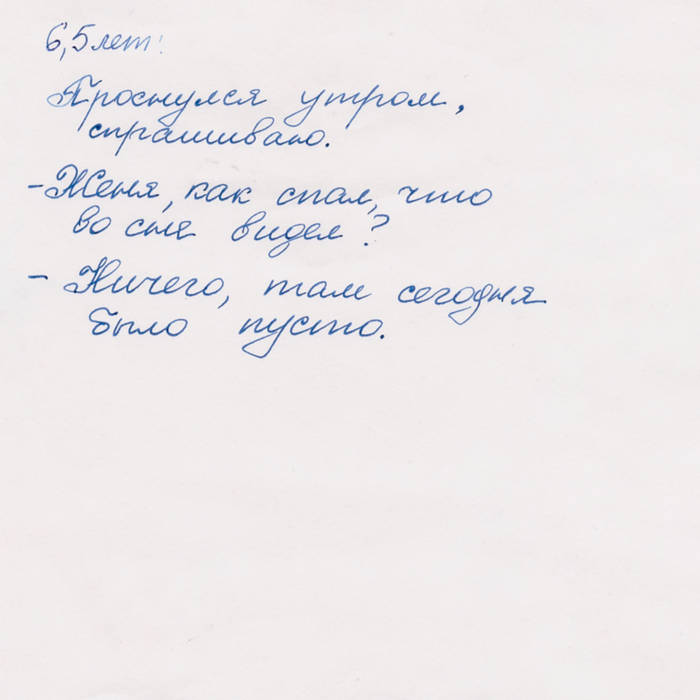 6,5 лет:
Проснулся утром,
спрашиваю.
- Женя, как спал, что
во сне видел?
- Ничего, там сегодня
было пусто.